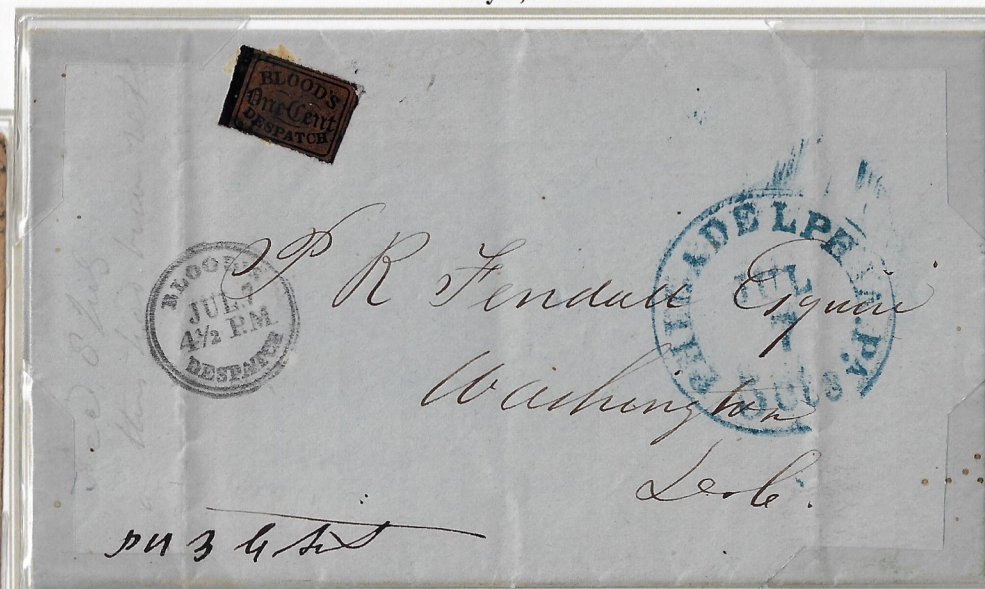 BLOOD'S
One Cent
DESPATCH
BLOOD'S
JUL 7
4½ P.M
DESPATCH
PHILADELPHIA.PA
JUL
7
5 cts
P R Fendall Esquire
Washington
D. C.